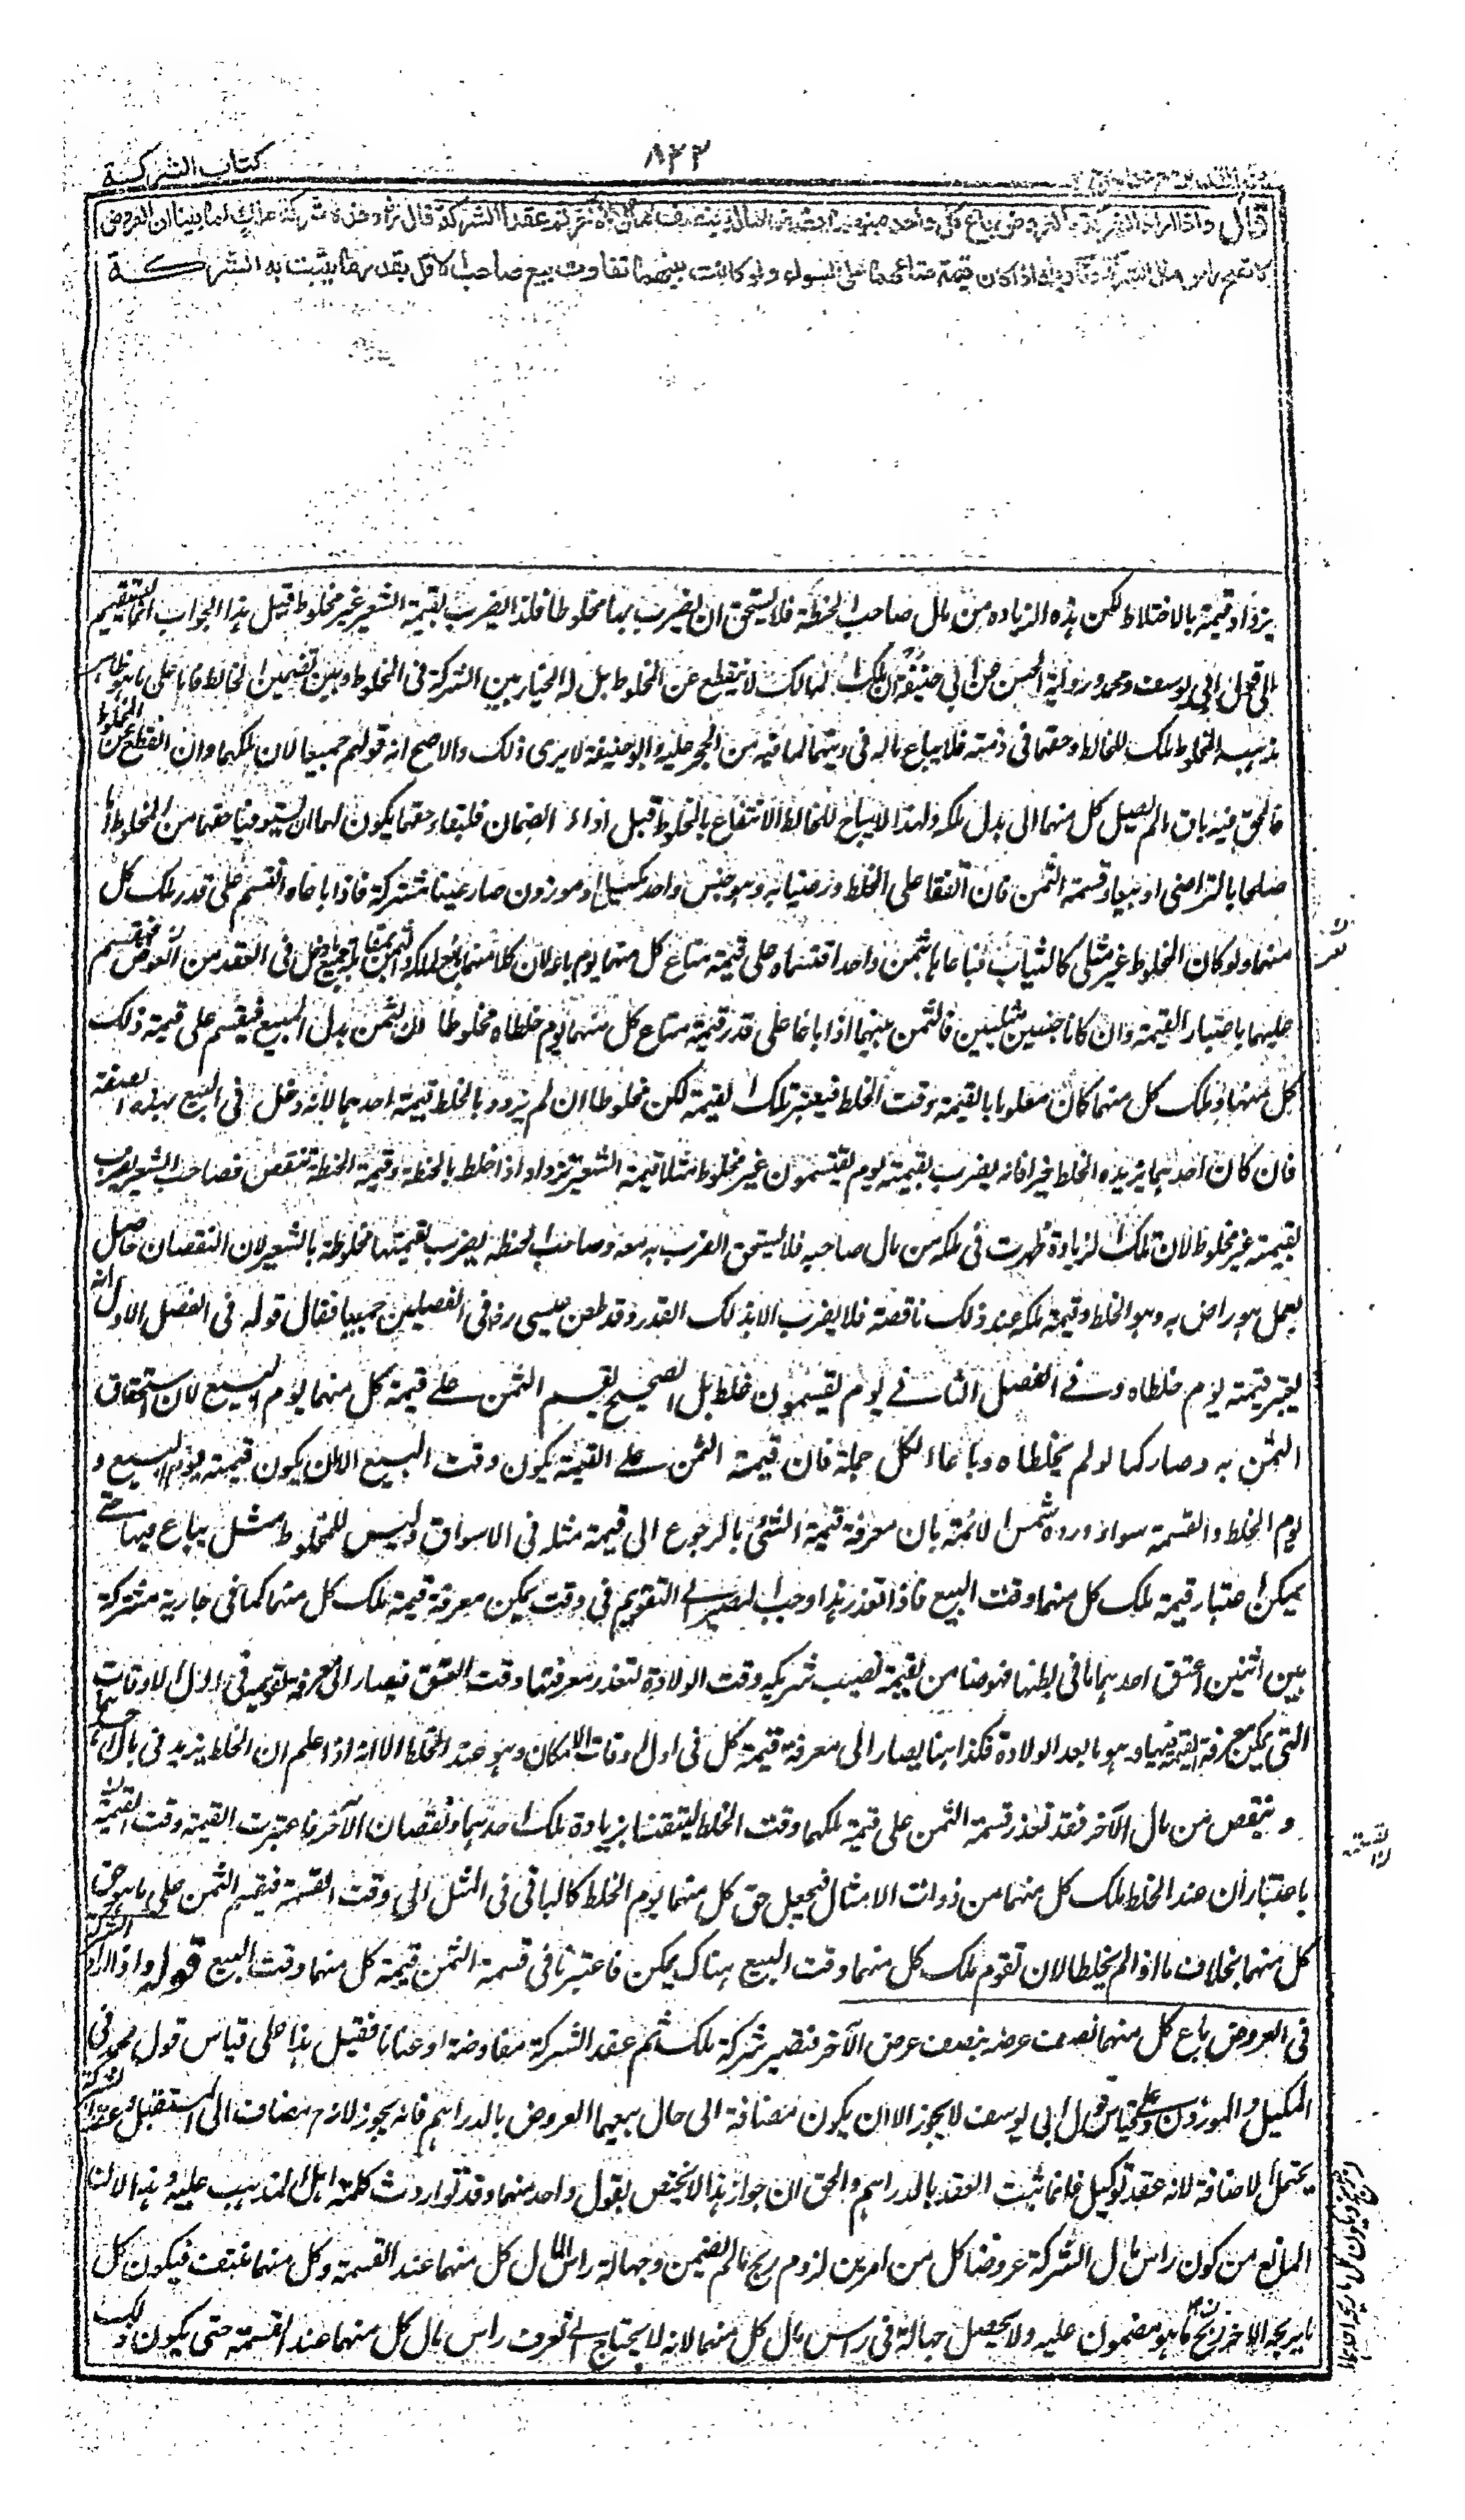 كتاب الشركة
٨٢٢
قال واذا اراد الشركة بالعروض باع كل واحد منهما نصف ماله بنصف مال الآخر ثم عقدا الشركة قال وهذه شركة ملك لما بينا ان العروض
لا تصلح راس مال الشركة وتاويله اذا كان قيمة متاعهما على السواء ولو كانت بينهما تفاوت يبيع صاحب الاقل بقدر ما يثبت به الشركة
يزداد قيمته بالاختلاط لكن هذه الزيادة من مال صاحب الحنطة فلا يستحق ان يضرب بها مخلوطا فلذا يضرب بقيمة الشعير غير مخلوط قيل هذا الجواب انما يستقيم
على قول ابي يوسف ومحمد ورواية الحسن عن ابي حنيفة ان ملك المالك لا ينقطع عن المخلوط بل له الخيار بين الشركة في المخلوط وبين تضمين الخالط فاما على ما هو ظاهر
مذهبه المخلوط ملك للخالط وحقهما في ذمته فلا يباع ماله في دينهما لما فيه من الحجر عليه وابو حنيفة لا يرى ذلك والاصح انه قولهم جميعا لان ملكهما وان انقطع عن المخلوط
فالحق فيه باق ما لم يصل كل منهما الى بدل ملكه ولهذا لا يباح للخالط الانتفاع بالمخلوط قبل اداء الضمان فلبقاء حقهما يكون لهما ان يستوفيا حقهما من المخلوط اما
صلحا بالتراضي او بيعا وقسمة الثمن فان اتفقا على الخلط ورضيا به وهو جنس واحد مكيل او موزون صار عينا مشتركة فاذا باعاه انقسم على قدر ملك كل
منهما ولو كان المخلوط غير مثلي كالثياب فباعاها بثمن واحد اقتسماه على قيمة متاع كل منهما يوم باعه لان كلا منهما بائع لملكه والثمن بمقابلة جميع ما دخل في العقد من العوض فيقسم
عليهما باعتبار القيمة وان كانا جنسين مثليين فالثمن بينهما اذا باعا على قدر قيمة متاع كل منهما يوم خلطاه مخلوطا لان الثمن بدل المبيع فيقسم على قيمة ذلك
كل منهما وملك كل منهما كان معلوما بالقيمة وقت الخلط فيعتبر تلك القيمة لكن مخلوطا ان لم يزدد بالخلط قيمة احدهما لانه دخل في البيع بهذه الصفة
فان كان احدهما يزيده الخلط خيرا فانه يضرب بقيمته يوم يقتسمون غير مخلوط مثلا قيمة الشعير تزداد اذا خلط بالحنطة وقيمة الحنطة تنقص فصاحب الشعير يضرب
بقيمته غير مخلوط لان تلك الزيادة ظهرت في ملكه من مال صاحبه فلا يستحق الضرب به معه وصاحب الحنطة يضرب بقيمتها مخلوطة بالشعير لان النقصان حاصل
بعمل هو راض به وهو الخلط وقيمة ملكه عند ذلك ناقصة فلا يضرب الا بذلك القدر وقد طعن عيسى رح في الفصلين جميعا فقال قوله في الفصل الاول انه
يعتبر قيمته يوم خلطاه وفي الفصل الثاني يوم يقسمون غلط بل الصحيح يقسم الثمن على قيمة كل منهما يوم البيع لان استحقاق
الثمن به وصار كما لو لم يخلطاه وباعا الكل جملة فان قيمة الثمن على القيمة يكون وقت البيع الا ان يكون قيمته يوم البيع و
يوم الخلط والقسمة سواء ورده شمس الائمة بان معرفة قيمة الشئ بالرجوع الى قيمة مثله في الاسواق وليس للمخلوط مثل يباع فيها حتى
يمكن اعتبار قيمة ملك كل منهما وقت البيع فاذا تعذر هذا وجب المصير الى التقويم في وقت يمكن معرفة قيمة ملك كل منهما كما في جارية مشتركة
بين اثنين اعتق احدهما ما في بطنها فهو ضامن لقيمة نصيب شريكه وقت الولادة لتعذر معرفتها وقت العتق فيصار الى معرفة تقويمه في اول الاوقات
التي يمكن معرفة القيمة فيها وهو ما بعد الولادة فكذا هنا يصار الى معرفة قيمة كل في اول اوقات الامكان وهو عند الخلط الا انه اذا علم ان الخلط يزيد في مال احدهما
وينقص من مال الآخر فقد تعذر قسمة الثمن على قيمة ملكهما وقت الخلط لتيقننا بزيادة ملك احدهما ونقصان الآخر فاعتبرت القيمة وقت القسمة
باعتبار ان عند الخلط ملك كل منهما من ذوات الامثال فيجعل حق كل منهما يوم الخلط كالباقي في المثل الى وقت القسمة فيقسم الثمن على ما هو حق
كل منهما بخلاف ما اذا لم يخلطا لان تقوم ملك كل منهما وقت البيع هناك يمكن فاعتبرنا في قسمة الثمن قيمة كل منهما وقت البيع قوله واذا اراد الشركة
في العروض باع كل منهما نصف عرضه بنصف عرض الآخر فتصير شركة ملك ثم عقد الشركة مفاوضة او عنانا فقيل هذا على قياس قول محمد في
المكيل والموزون وعلى قياس قول ابي يوسف لا يجوز الا ان يكون مضافة الى حال بيعهما العروض بالدراهم فانه يجوز لانه مضاف الى المستقبل وعقد الشركة
يحتمل الاضافة لانه عقد توكيل فانما يثبت العقد بالدراهم والحق ان جواز هذا لا يختص بقول واحد منهما وقد تواردت كلمة اهل المذهب عليه وهذا لان
المانع من كون راس مال الشركة عروضا كل من امرين لزوم ربح ما لم يضمن وجهالة راس المال كل منهما عند القسمة وكل منهما منتف فيكون كل
ما يربحه الآخر ربح ما هو مضمون عليه ولا يحصل جهالة في راس مال كل منهما لانه لا يحتاج الى تعرف راس مال كل منهما عند القسمة حتى يكون ذلك